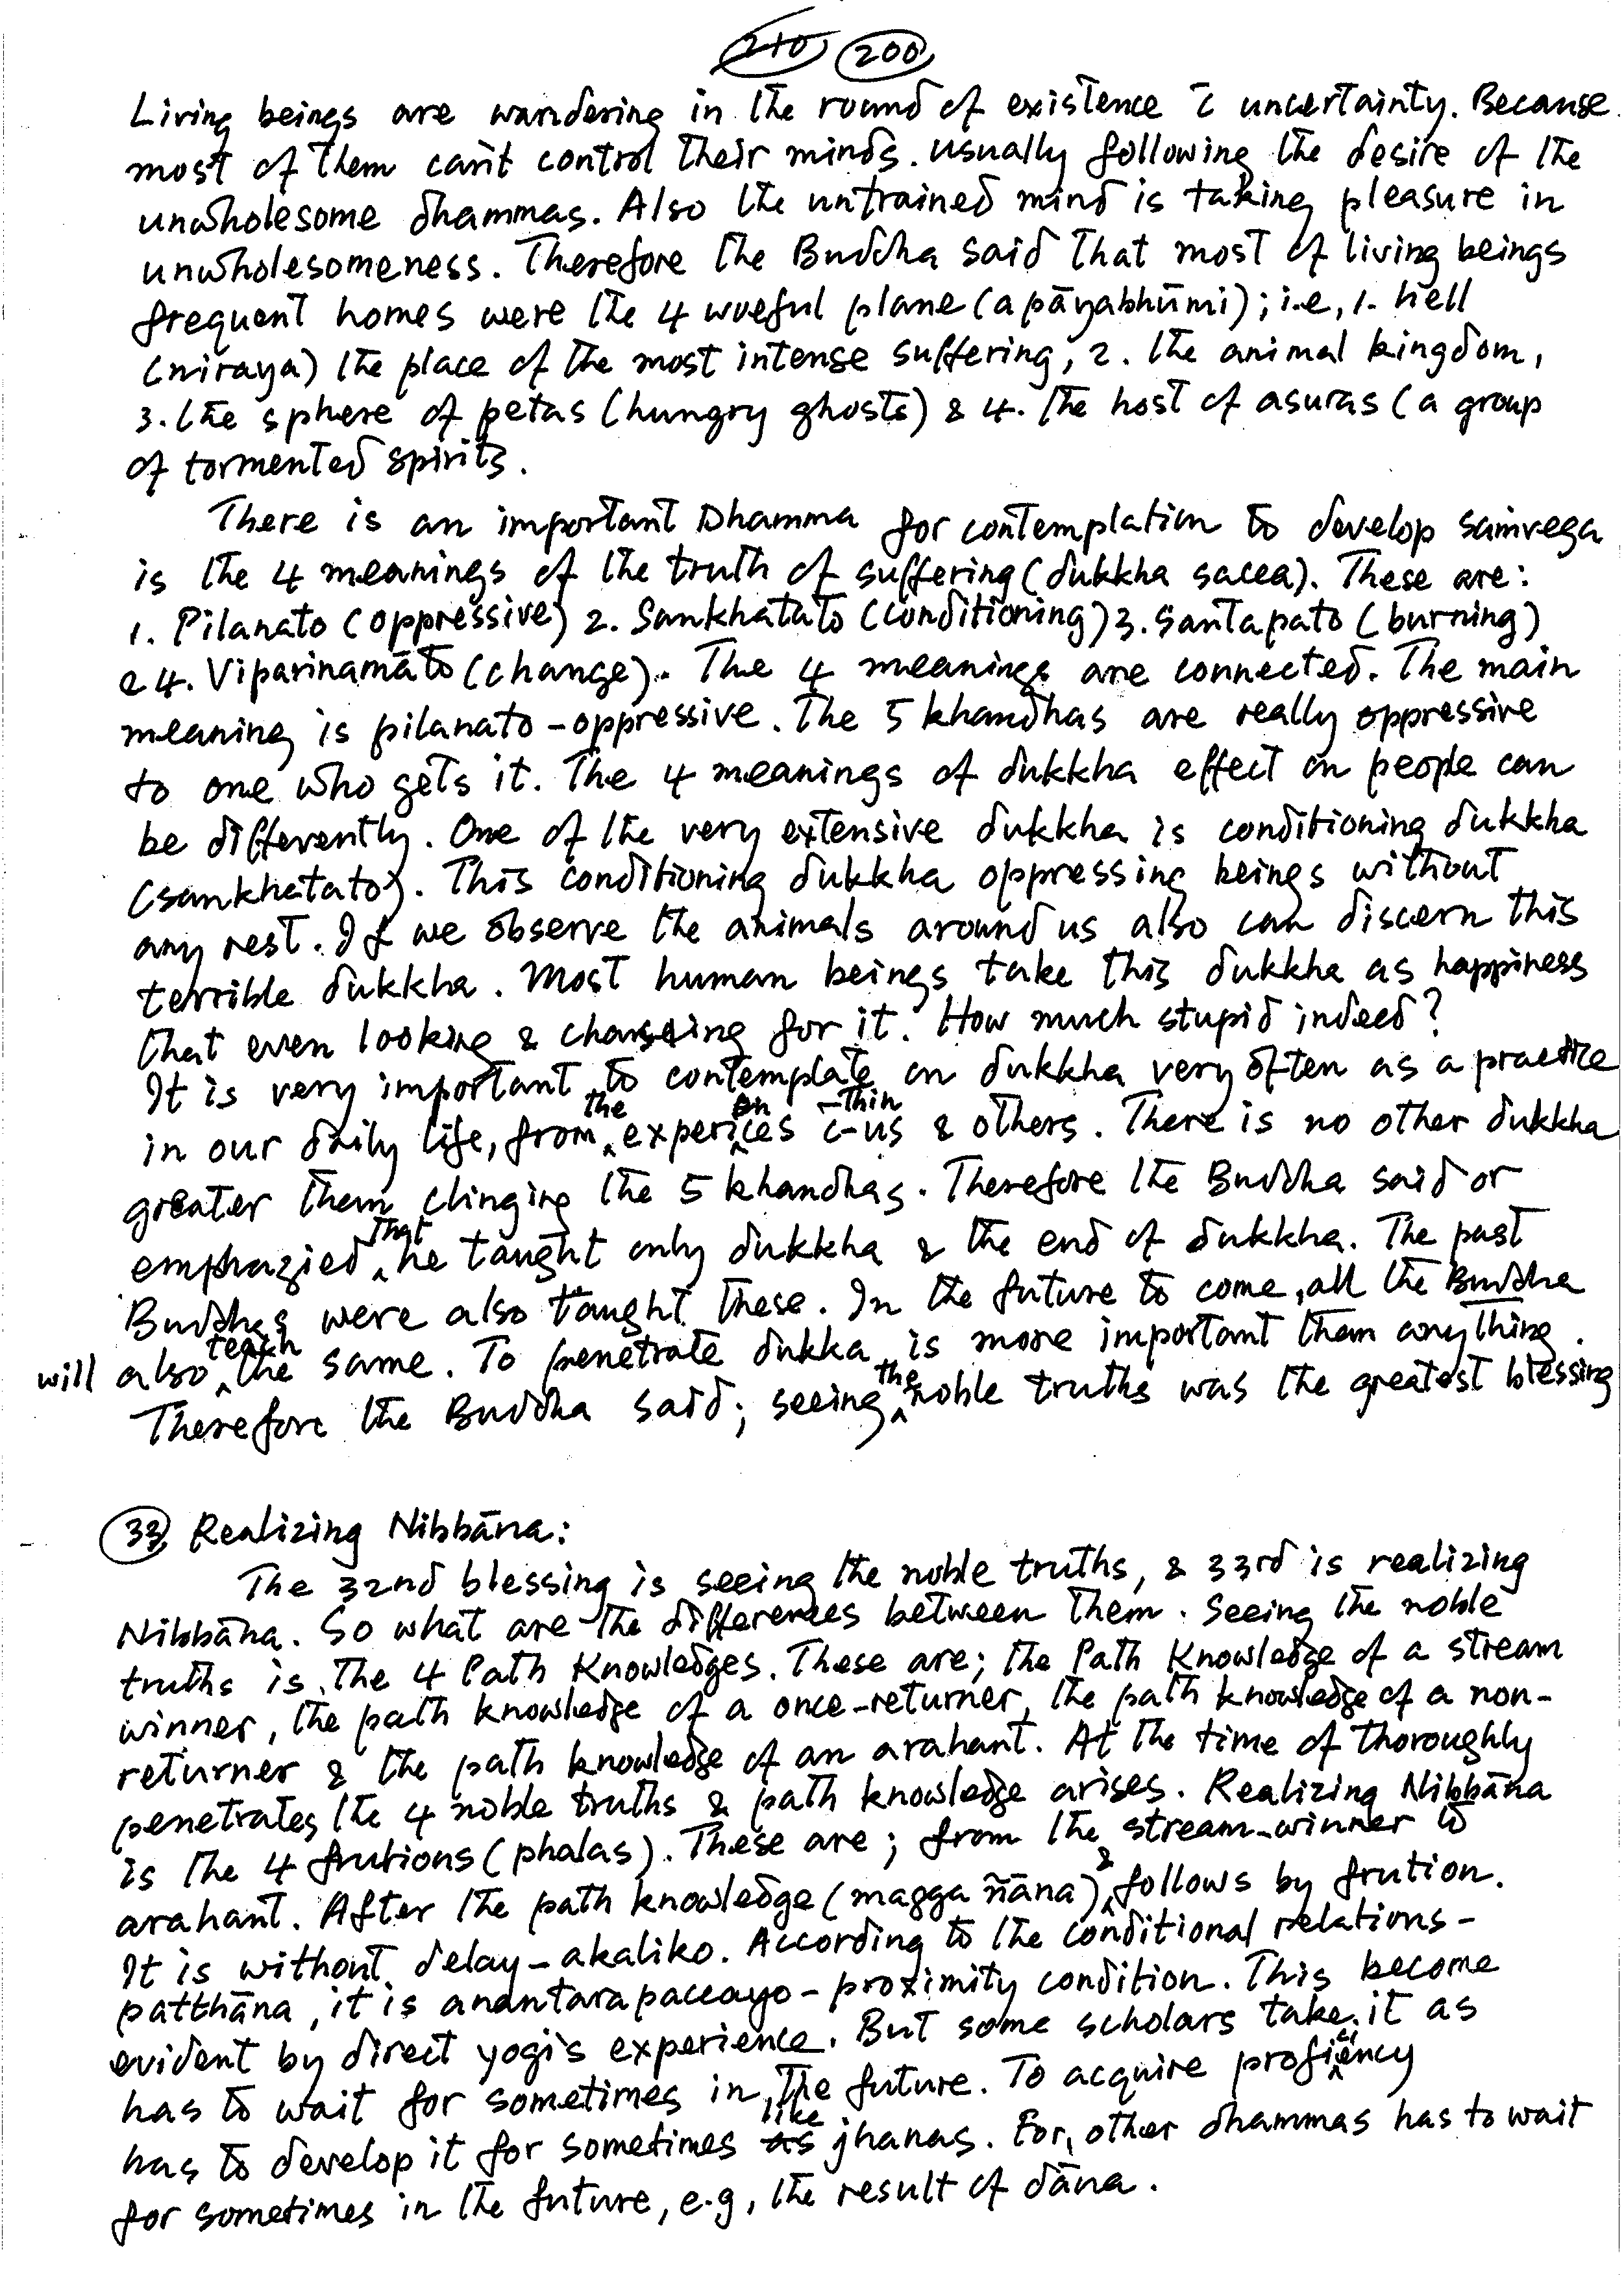 210 200
Living beings are wandering in the round of existence c̄ uncertainty. Because
most of them can't control their minds. usually following the desire of the
unwholesome dhammas. Also the untrained mind is taking pleasure in
unwholesomeness. Therefore the Buddha said that most of living beings
frequent homes were the 4 woeful plane (apāyabhūmi); i.e, 1. hell
(niraya) the place of the most intense suffering, 2. the animal kingdom,
3. the sphere of petas (hungry ghosts) & 4. the host of asuras (a group
of tormented spirits.
There is an important Dhamma for contemplation to develop saṁvega
is the 4 meanings of the truth of suffering (dukkha sacca). These are:
1. Pilanato (oppressive) 2. Sankhatato (conditioning) 3. Santapato (burning)
& 4. Viparinamāto (change). The 4 meanings are connected. The main
meaning is pilanato - oppressive. The 5 khandhas are really oppressive
to one who gets it. The 4 meanings of dukkha effect on people can
be differently. One of the very extensive dukkha is conditioning dukkha
(sankhatato). This conditioning dukkha oppressing beings without
any rest. If we observe the animals around us also can discern this
terrible dukkha. Most human beings take this dukkha as happiness
that even looking & chasing for it. How much stupid indeed?
It is very important to contemplate on dukkha very often as a practice
in our daily life, from the experiences c̄-thin us & others. There is no other dukkha
greater them clinging the 5 khandhas. Therefore the Buddha said or
emphazied that he taught only dukkha & the end of dukkha. The past
Buddhas were also taught these. In the future to come, all the Buddha
will also teach the same. To penetrate dukka is more important than anything.
Therefore the Buddha said; seeing the noble truths was the greatest blessing
33 Realizing Nibbāna:
The 32nd blessing is seeing the noble truths, & 33rd is realizing
Nibbāna. So what are the differences between them. Seeing the noble
truths is the 4 Path Knowledges. These are; the Path Knowledge of a stream
winner, the path knowledge of a once-returner, the path knowledge of a non-
returner & the path knowledge of an arahant. At the time of thoroughly
penetrates the 4 noble truths & path knowledge arises. Realizing Nibbāna
is the 4 frutions (phalas). These are; from the stream-winner to
arahant. After the path knowledge (magga ñāna) & follows by frution.
It is without delay - akaliko. According to the conditional relations -
patthāna, it is anantarapaccayo - proximity condition. This become
evident by direct yogi's experience. But some scholars take it as
has to wait for sometimes in the future. To acquire proficiency
has to develop it for sometimes as like jhanas. For other dhammas has to wait
for sometimes in the future, e.g, the result of dāna.